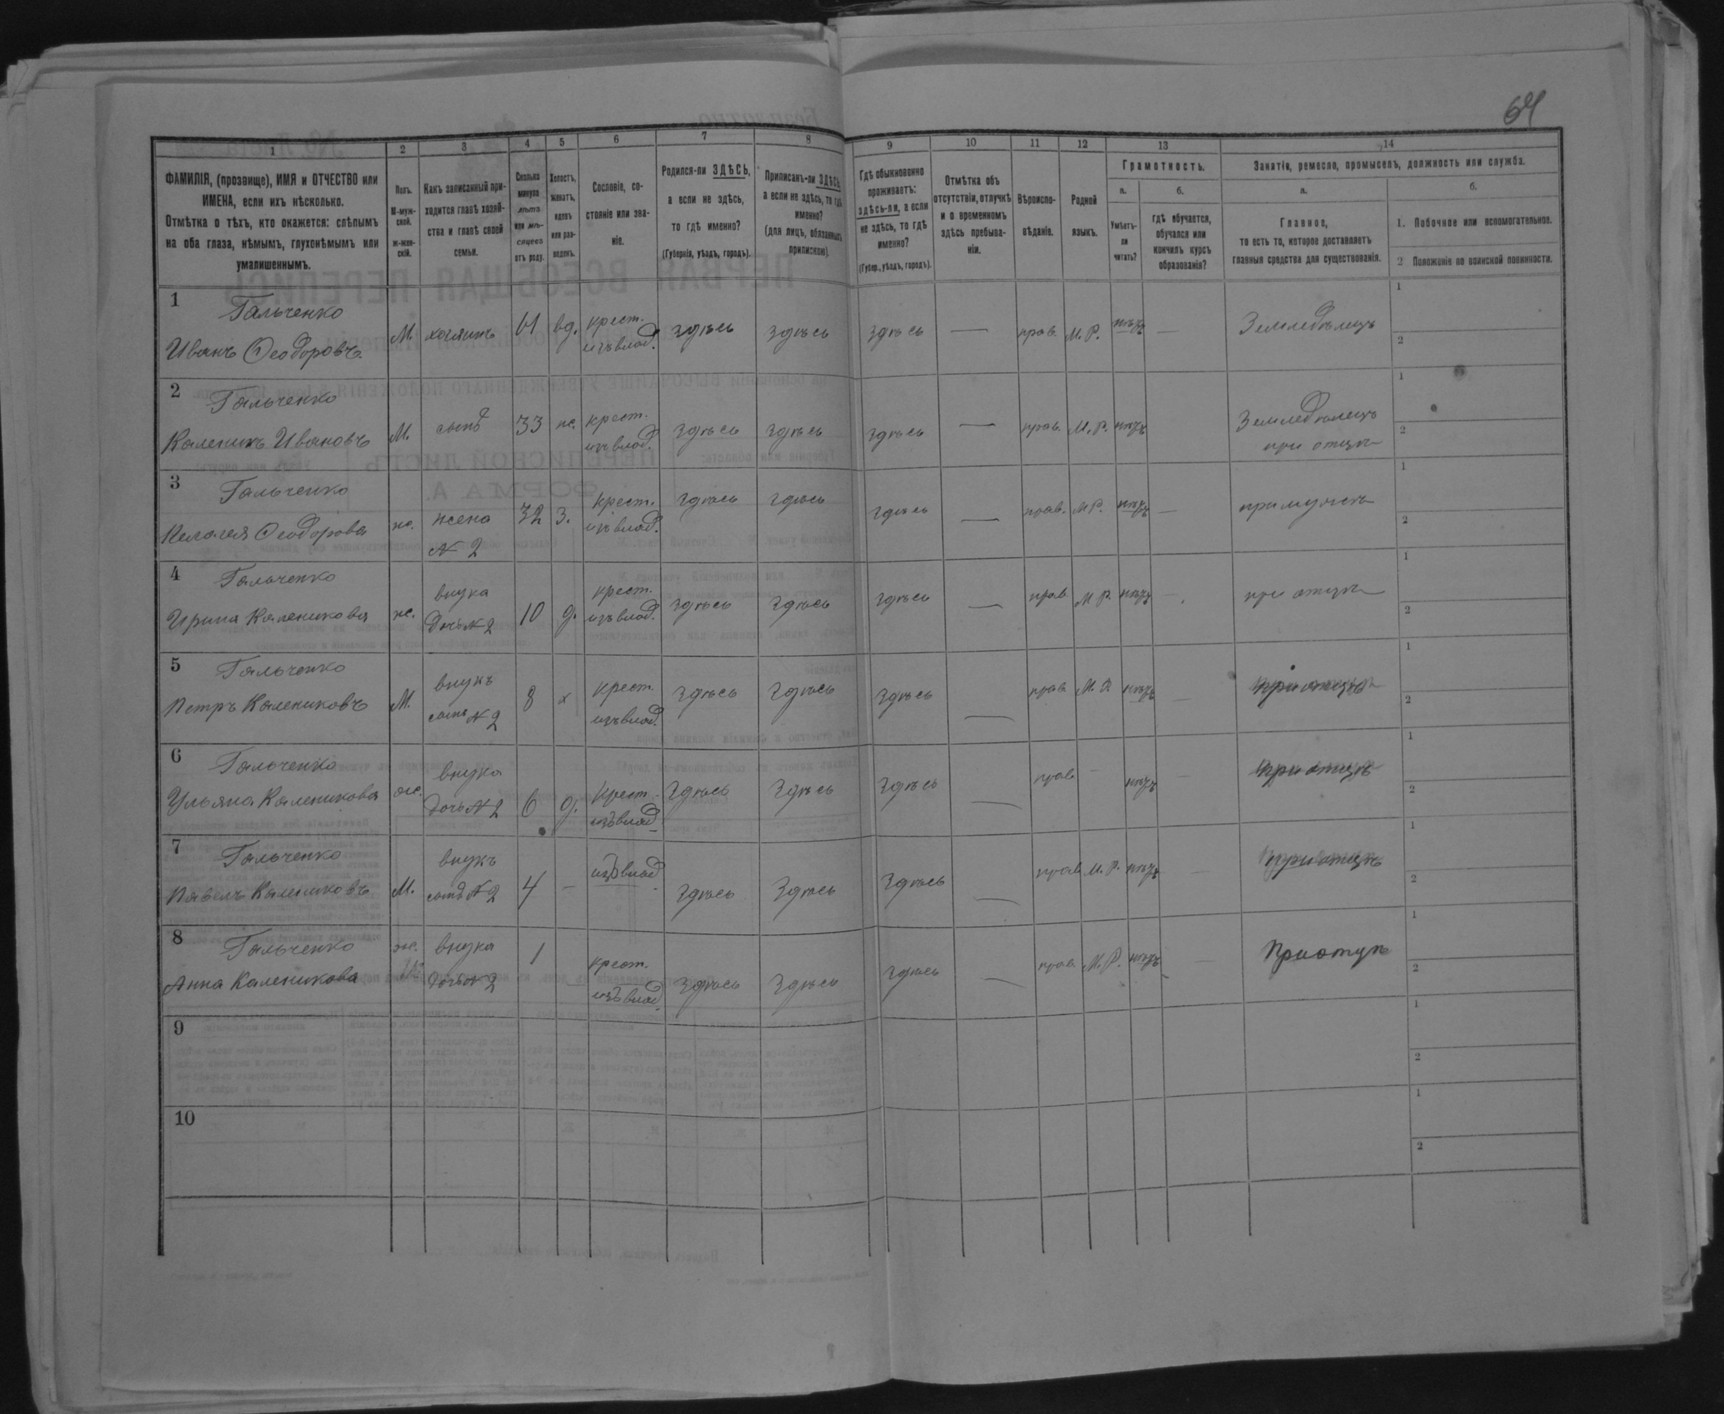 64
1 2 3 4 5 6 7 8 9 10 11 12 13 14
ФАМИЛІЯ, (прозвище), ИМЯ и ОТЧЕСТВО или
ИМЕНА, если ихъ нѣсколько.
Отмѣтка о тѣхъ, кто окажется: слѣпымъ
на оба глаза, нѣмымъ, глухонѣмымъ или
умалишеннымъ.
Полъ.
М-муж-
ской.
ж-жен-
скій.
Какъ записанный при-
ходится главѣ хозяй-
ства и главѣ своей
семьи.
Сколько
минуло
лѣтъ
или мѣ-
сяцевъ
отъ роду.
Холостъ,
женатъ,
вдовъ
или раз-
веденъ.
Сословіе, со-
стояніе или зва-
ніе.
Родился-ли ЗДѢСЬ,
а если не здѣсь,
то гдѣ именно?
(Губернія, уѣздъ, городъ).
Приписанъ-ли ЗДѢСЬ,
а если не здѣсь, то гдѣ
именно?
(для лицъ, обязанныхъ
припискою).
Гдѣ обыкновенно
проживаетъ:
здѣсь-ли, а если
не здѣсь, то гдѣ
именно?
(Губер., уѣздъ, городъ).
Отмѣтка объ
отсутствіи, отлучкѣ
и о временномъ
здѣсь пребыва-
ніи.
Вѣроиспо-
вѣданіе.
Родной
языкъ.
Грамотность.
а.
Умѣетъ-
ли
читать?
б.
гдѣ обучается,
обучался или
кончилъ курсъ
образованія?
Занятіе, ремесло, промыселъ, должность или служба.
а.
Главное,
то есть то, которое доставляетъ
главныя средства для существованія.
б.
1. Побочное или вспомогательное.
2 Положеніе по воинской повинности.
1 Гальченко
Иванъ Ѳеодоровъ М. хозяинъ 61 вд. крест. изъ влад. здѣсь здѣсь здѣсь — прав. М. Р. нѣтъ — Земледѣлецъ
1
2
2 Гальченко
Каленикъ Ивановъ М. сынъ 33 ж. крест. изъ влад. здѣсь здѣсь здѣсь — прав. М. Р. нѣтъ Земледѣлецъ при отцѣ
1
2
3 Гальченко
Пелагея Ѳеодорова ж. жена № 2 32 з. крест. изъ влад. здѣсь здѣсь здѣсь — прав. М Р. нѣтъ — при мужѣ
1
2
4 Гальченко
Ирина Каленикова ж. внука дочь № 2 10 д. крест. изъ влад. здѣсь здѣсь здѣсь — прав М Р. нѣтъ - при отцѣ
1
2
5 Гальченко
Петръ Калениковъ М. внукъ сынъ № 2 8 х крест. изъ влад. здѣсь здѣсь здѣсь — прав. М. Р нѣтъ — при отцѣ
1
2
6 Гальченко
Ульяна Каленикова ж. внука дочь № 2 6 д. крест. изъ влад. здѣсь здѣсь здѣсь — прав - нѣтъ — при отцѣ
1
2
7 Гальченко
Павелъ Калениковъ М. внукъ сынъ № 2 4 — изъ влад. здѣсь здѣсь здѣсь — прав М. Р. нѣтъ — при отцѣ
1
2
8 Гальченко
Анна Каленикова ж. внука дочь № 2 1 крест. изъ влад. здѣсь здѣсь здѣсь — прав. М. Р. нѣтъ — При отцѣ
1
2
9
1
2
10
1
2